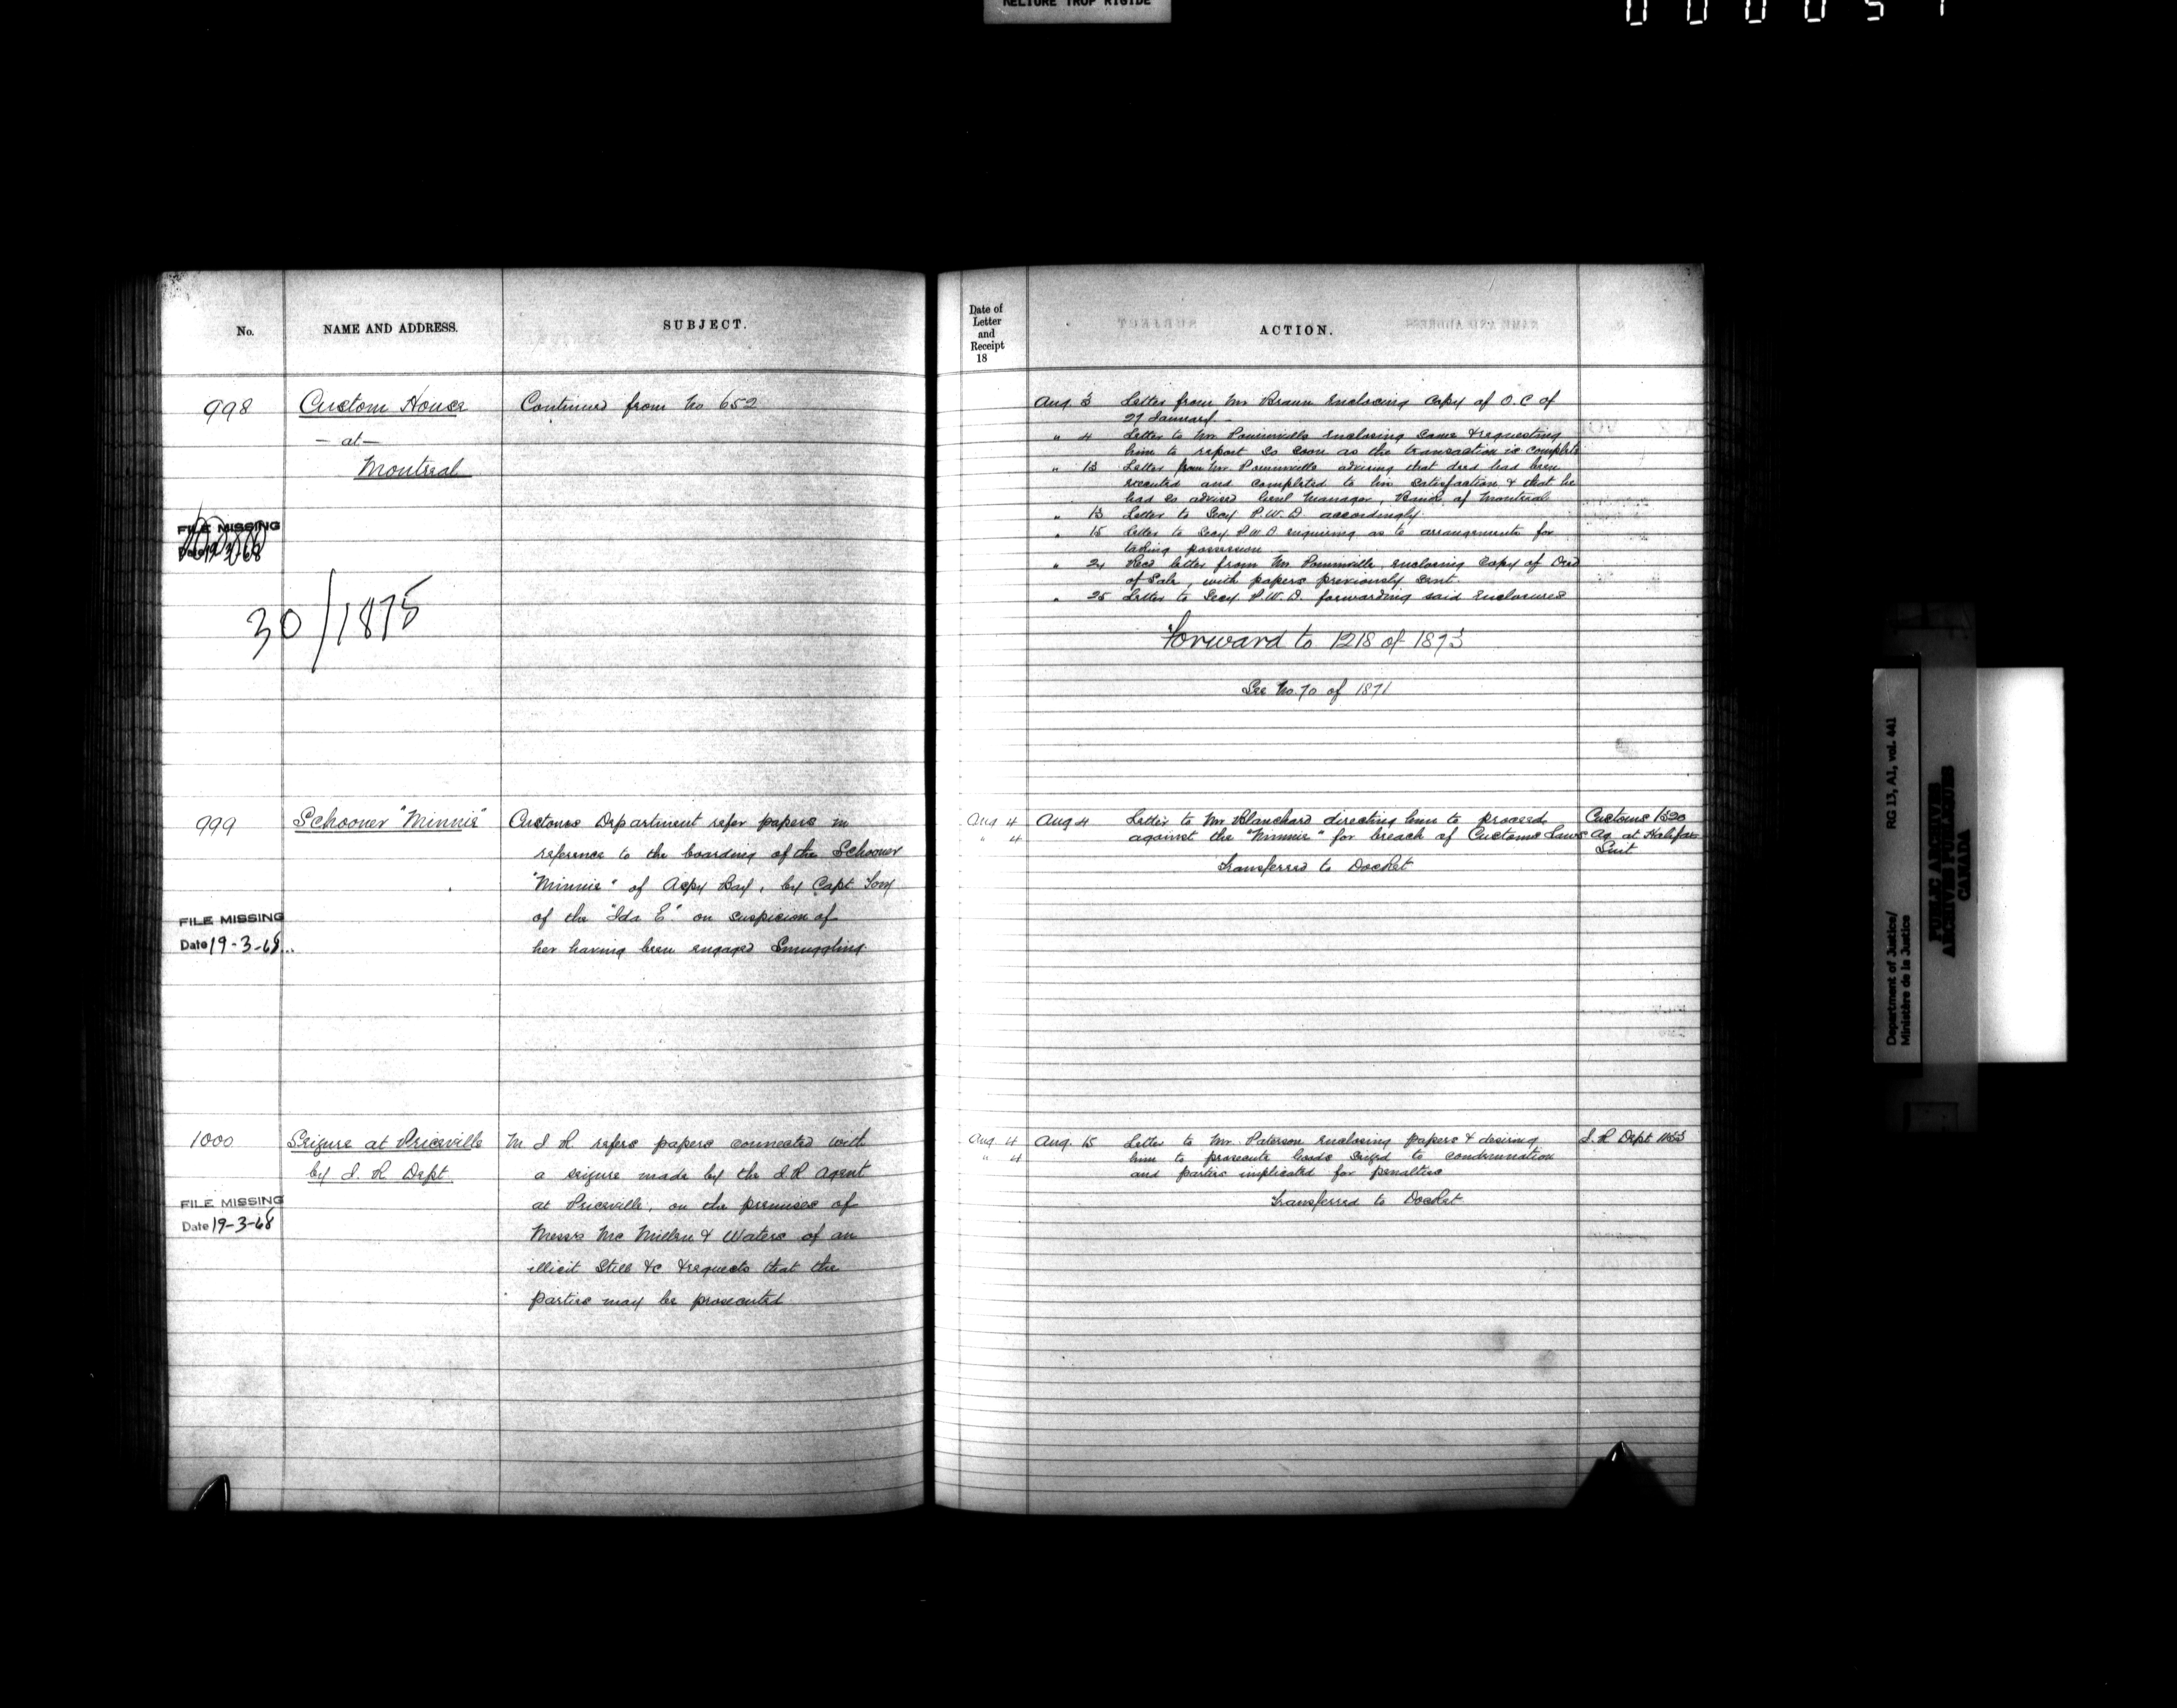 RELIURE TROP RIGIDE
No.
NAME AND ADDRESS.
SUBJECT.
998
Custom House
- at -
Montreal
Continued from No 652
FILE MISSING
Date 19-3-68
30/1875
999
Schooner "Minnie"
Customs Department refer papers in
reference to the boarding of the Schooner
"Minnie" of Aspy Bay, by Capt Tory
of the "Ida E." on suspicion of
her having been engaged Smuggling
FILE MISSING
Date 19-3-68...
1000
Seizure at Priceville
by I. R Dept.
M I R refers papers connected with
a seizure made by the I.R Agent
at Priceville, on the premises of
Messrs Mc Millan & Waters of an
illicit Still &c & requests that the
parties may be prosecuted
FILE MISSING
Date 19-3-68
Date of
Letter
and
Receipt
18
ACTION.
Aug 3 Letter from Mr Braun enclosing Copy of O.C of
27 January -
" 4 Letter to Mr Pominville enclosing same & requesting
him to report so soon as the transaction is complete
" 13 Letter from Mr. Pominville advising that deed had been
executed and completed to his satisfaction & that he
had so advised Genl Manager, Bank of Montreal
" 13 Letter to Secy P.W.D. accordingly.
" 15 Letter to Secy P.W.D enquiring as to arrangements for
taking possession
" 24 Recd letter from Mr Pominville, enclosing Copy of Deed
of Sale, with papers previously sent.
" 25 Letter to Secy P.W.D. forwarding said enclosures
Forward to 1218 of 1873
See No. 70 of 1871
Aug 4 Aug 4 Letter to Mr Blanchard directing him to proceed Customs 1320
" 4 against the "Minnie" for breach of Customs Laws Ag at Halifax
Suit
Transferred to Docket
Aug 4 Aug. 15 Letter to Mr. Paterson enclosing papers & desiring I. R Dept 1153
" 4 him to prosecute Goods Seized to condemnation
and parties implicated for penalties
Transferred to Docket
Department of Justice/
Ministère de la Justice
RG 13, A1, vol. 441
PUBLIC ARCHIVES
ARCHIVES PUBLIQUES
CANADA